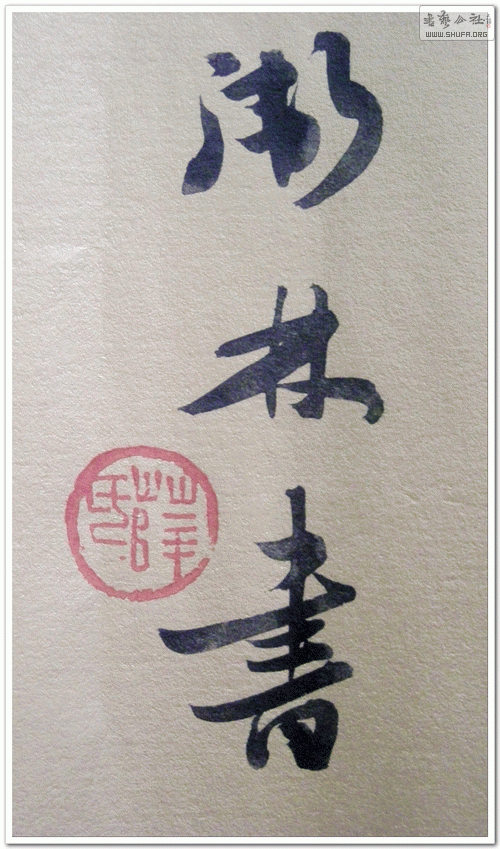 書藝公社
WWW.SHUFA.ORG
衛林書